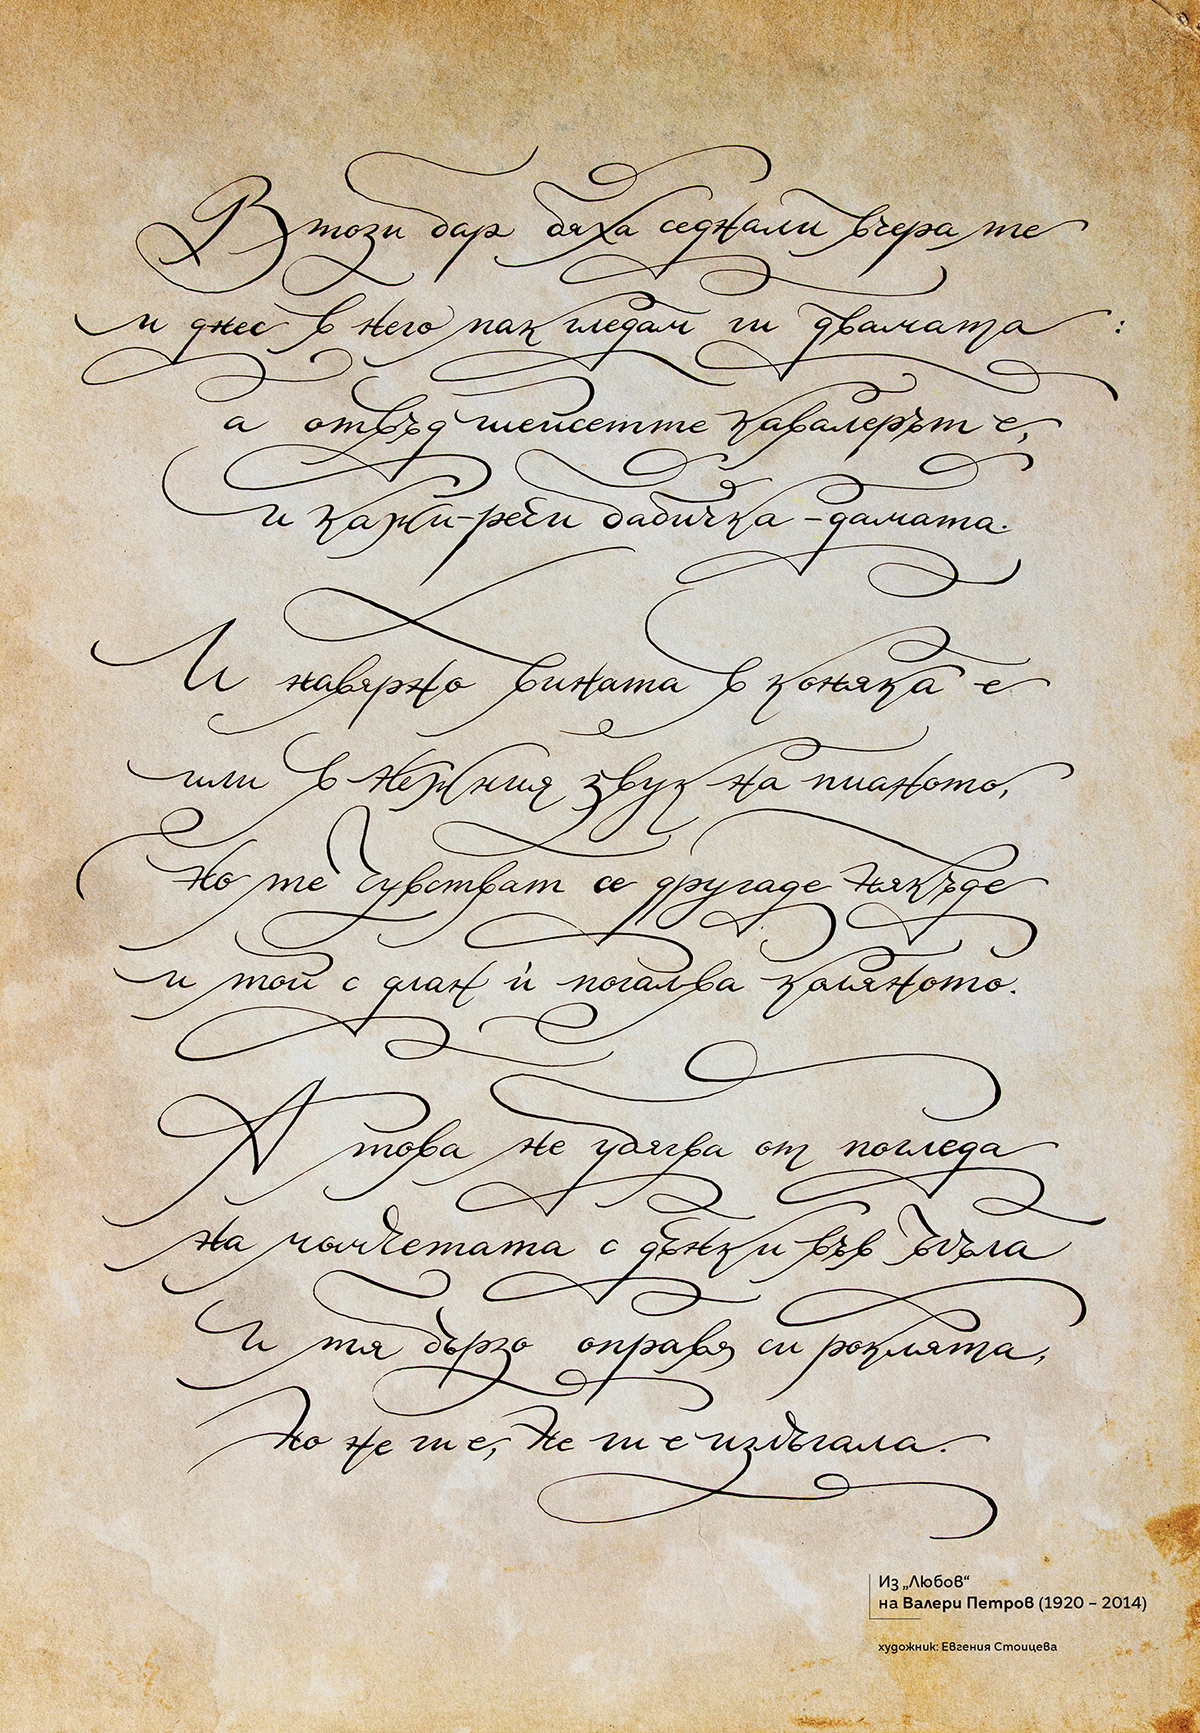 В този бар бяха седнали вчера те
и днес в него пак гледам ги двамата :
а отвъд шейсетте кавалерът е,
и кажи-речи бабичка – дамата.
И навярно вината в коняка е
или в нежния звук на пианото,
но те чувстват се другаде някъде
и той с длан ѝ погалва коляното.
А това не убягва от погледа
на момчетата с дънки във ъгъла
и тя бързо оправя си роклята,
но не ги е, не ги е излъгала.
Из „Любов“
на Валери Петров (1920 – 2014)
художник: Евгения Стоицева